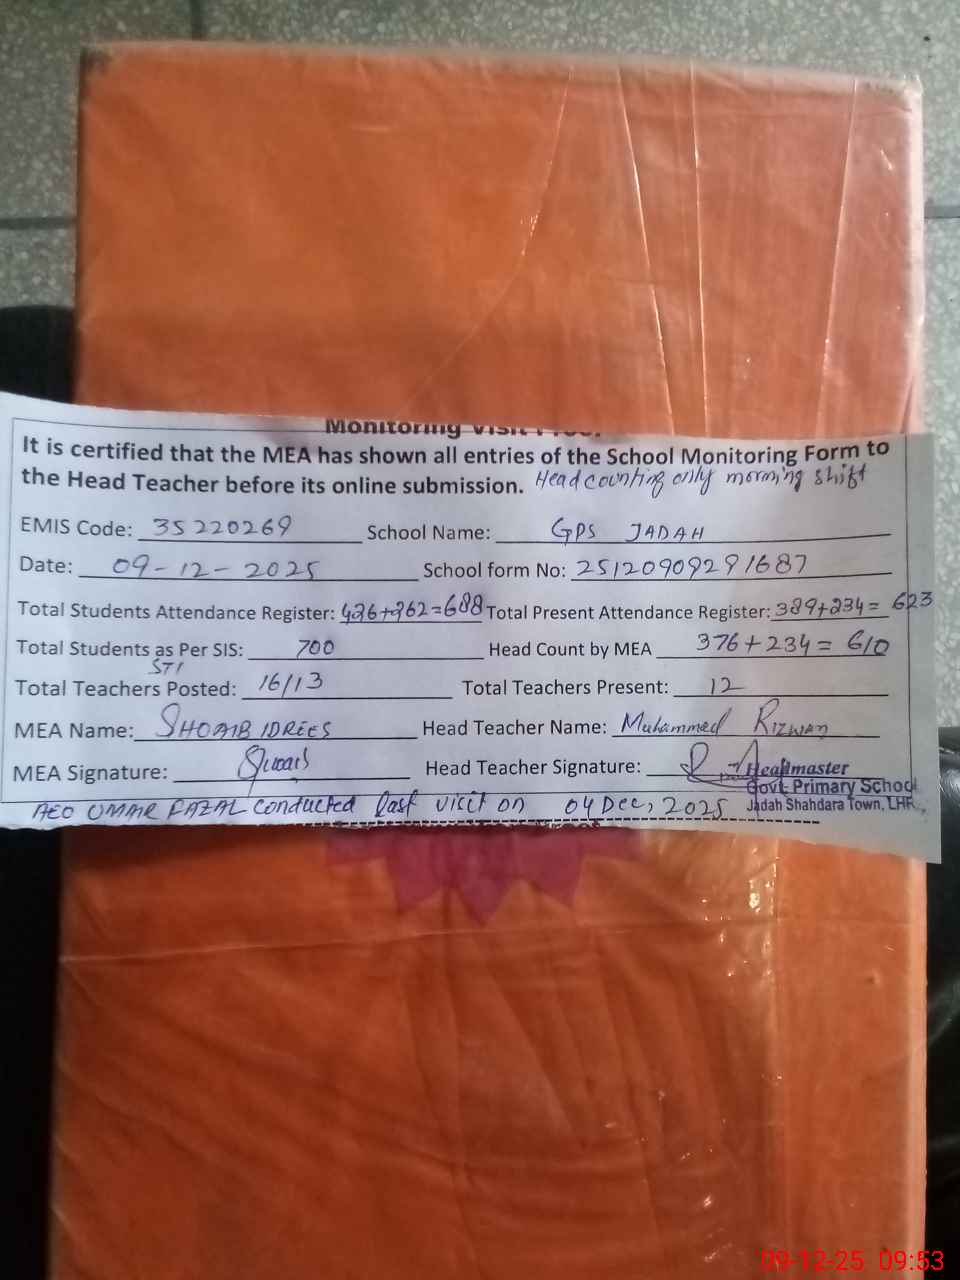 Monitoring Visit Proof
It is certified that the MEA has shown all entries of the School Monitoring Form to
the Head Teacher before its online submission. Head counting only morning shift
EMIS Code: 35220269 School Name: GPS JADAH
Date: 09-12-2025 School form No: 25120909291687
Total Students Attendance Register: 426+262=688 Total Present Attendance Register: 389+234= 623
Total Students as Per SIS: 700 Head Count by MEA 376+234= 610
STI
Total Teachers Posted: 16/13 Total Teachers Present: 12
MEA Name: SHOAIB IDREES Head Teacher Name: Muhammed Rizwan
MEA Signature: Head Teacher Signature:
Headmaster
Govt. Primary School
Jadah Shahdara Town, LHR.
AEO UMAR FAZAL conducted last visit on 04 Dec, 2025
09-12-25 09:53